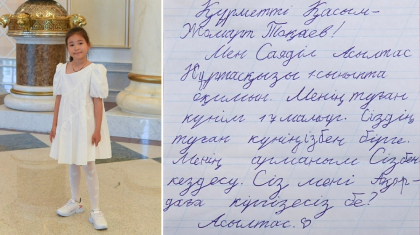 Құрметті Қасым-
Жомарт Тоқаев!
Мен Саяділ Асылтас
Нұртасқызы 1 сыныпта
оқимын. Менің туған
күнім 17 мамыр. Сіздің
туған күніңізбен бірге.
Менің арманым Сізбен
кездесу. Сіз мені Ақор-
даға кіргізесіз бе?
Асылтас.